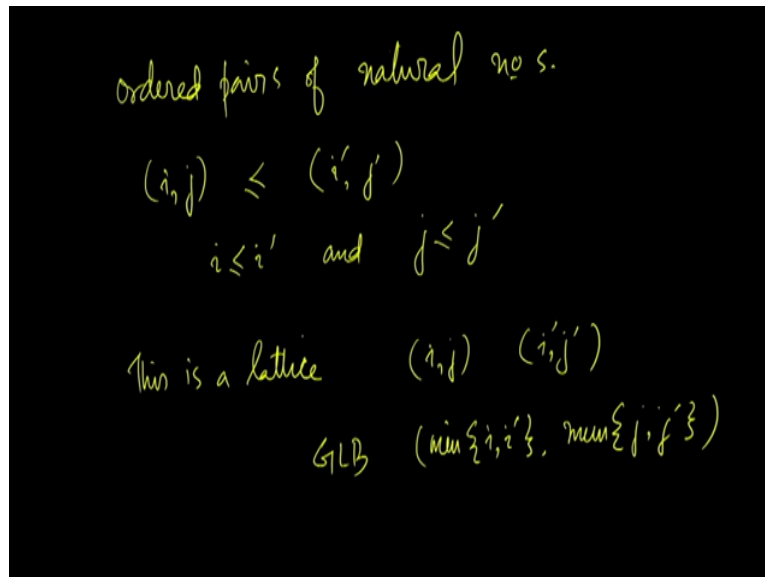 ordered pairs of natural no s.
(i, j) ≤ (i′, j′)
i ≤ i′ and j ≤ j′
This is a lattice (i, j) (i′, j′)
GLB (min{i, i′}, min{j, j′})